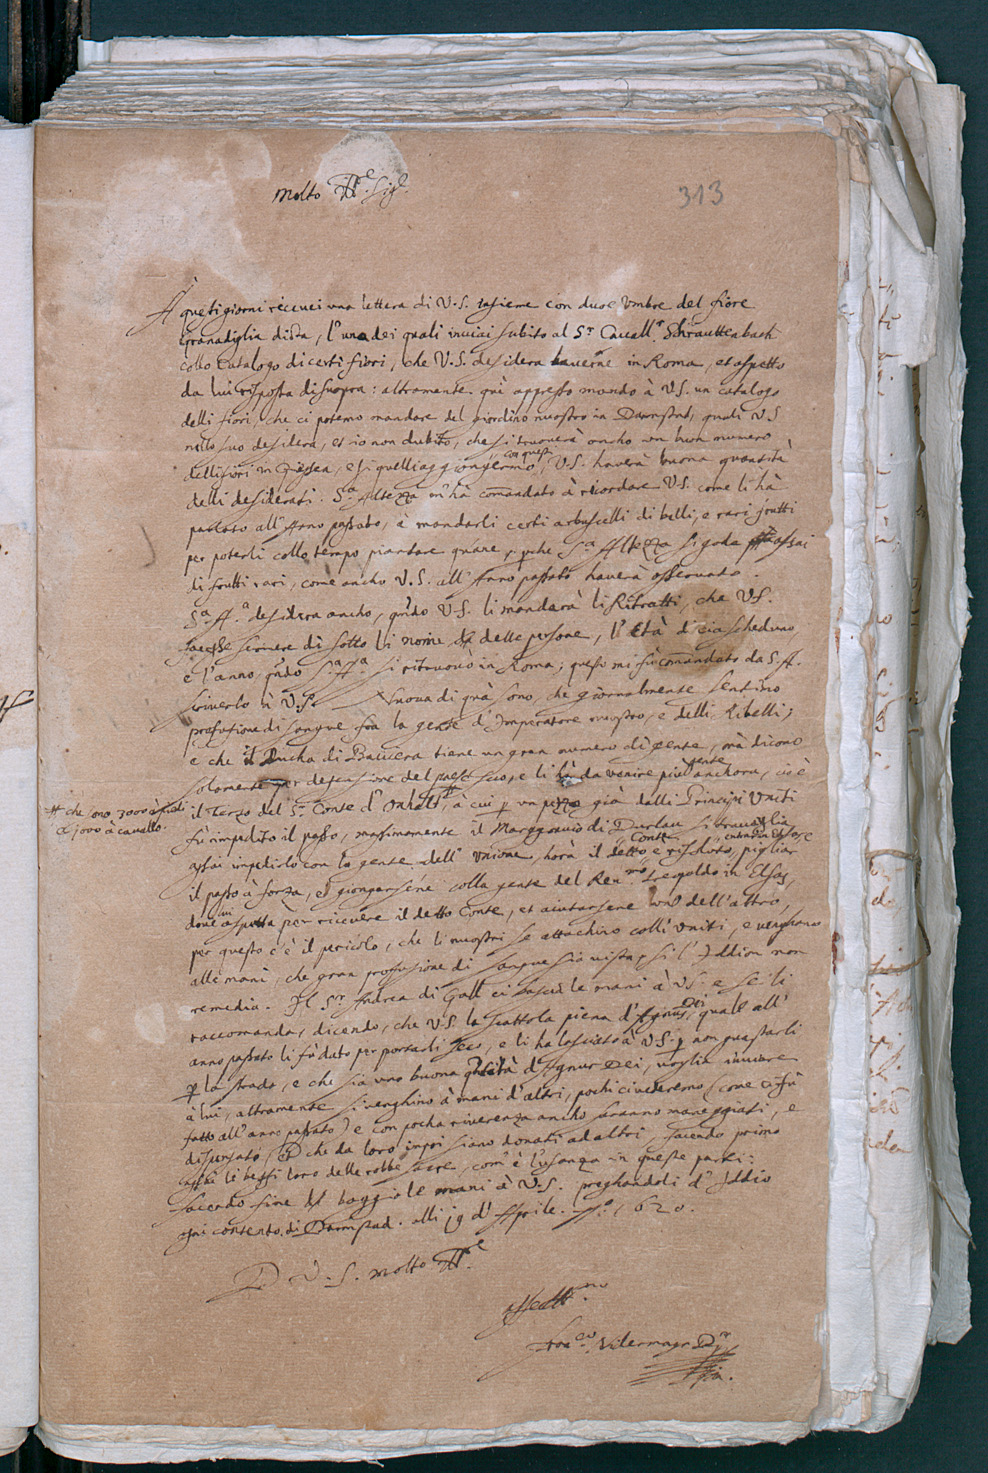 Molto Ill.e Sig.e
313
A questi giorni riceuei una lettera di V.S. insieme con duoe Vmbre del fiore
Granadiglia di Sta, l'una dei quali inuiai subito al S.r Cauall.r Schrauttenbach
collo Catalogo di certi fiori, che V.S. desidera hauerne in Roma, et aspetto
da lui risposta di suopra: altramante quì appresso mando à V.S. un catalogo
delli fiori, che ci potemo mandare del giardino nuostro in Darmstad, quali V.S
nello suo desidera, et io non dubito, che si truouerà ancho un buon numero
delli fiori in Giessa, e si quelli aggiongeremo con questi, V.S. hauerà buona quantità
delli desiderati. S.a Altezza m'hà comandato à ricordare V.S. come li hà
parlato all'Anno passato, à mandarli certi arbuscelli di belli, e rari frutti
per poterli collo tempo piantare quâ, perche S.a Altezza si goda assai
di frutti rari, come ancho V.S. all'Anno passato hauerà osseruato.
S.a A.a desidera ancho, qñdo V.S. li mandarà li Ritratti, che V.S.
facesse scriuere di sotto li nome delle persone, l'età di ciascheduno,
e l'anno, qñdo S.a A.a si ritruouò in Roma; questo mi fù comandato da S.A.
scriuerlo à V.S. Nuoua di quà sono, che giornalmente sentino
profusione di sangue fra la gente d'Imperatore nuostro, e delli Ribelli;
e che il Ducha di Bauiera tiene un gran numero di gente, mà dicono
solamente per defensione del paese suo, e li hà da venire più gente anchora, cioè
# che sono 3000 à piedi
e 1000 à cauallo.
il Terzo del S.r Conte d'Onhalt #, à cui per un pezzo già dalli Principi Vniti
fù impedito il passo, massimamente il Marggrauio di Durlau si trauaglia
assai impedirlo con la gente dell'Vnione, horà il detto Conte e risoluto, pigliar
il passo à forza, et giongersene colla gente del Reu.mo Leopoldo in Elsas,
doue aspetta per riceuere il detto Conte, et aiutarsene uno dell'altro,
per questo c'è il pericolo, che li nuostri se attachino colli Vniti, e venghano
alle mani, che gran profusione di sangue sia uista, si l'Iddio non
remedia. Il S.r Andrea di Gall ci bascia le mani à V.S. e se li
raccomanda, dicendo, che V.S. la scattola piena d'Agnus Dei, quale all'
anno passato li fù dato per portarli seco, e li ha lasciato à V.S. per non guastarli
per la strada, e che sia una buona qñtità d'Agnus Dei, voglia inuiare
à lui, altramente si venghino à mani d'altri, pochi ci uederemo (come ci fù
fatto all'anno passato) e con pocha riuerenza ancho saranno maneggiati, e
dispensati, che da loro inpoi siano donati ad altri, facendo primo
le beffi loro delle robbe sacre, com'è l'usanza in queste parti:
facendo fine baggio le mani à V.S. preghandoli d'Iddio
ogni contento. di Darmstad. alli 19 d'Aprile. A.o 1620.
D V.S. molto Ill.e
affett.mo
Fran.co Vilermayr